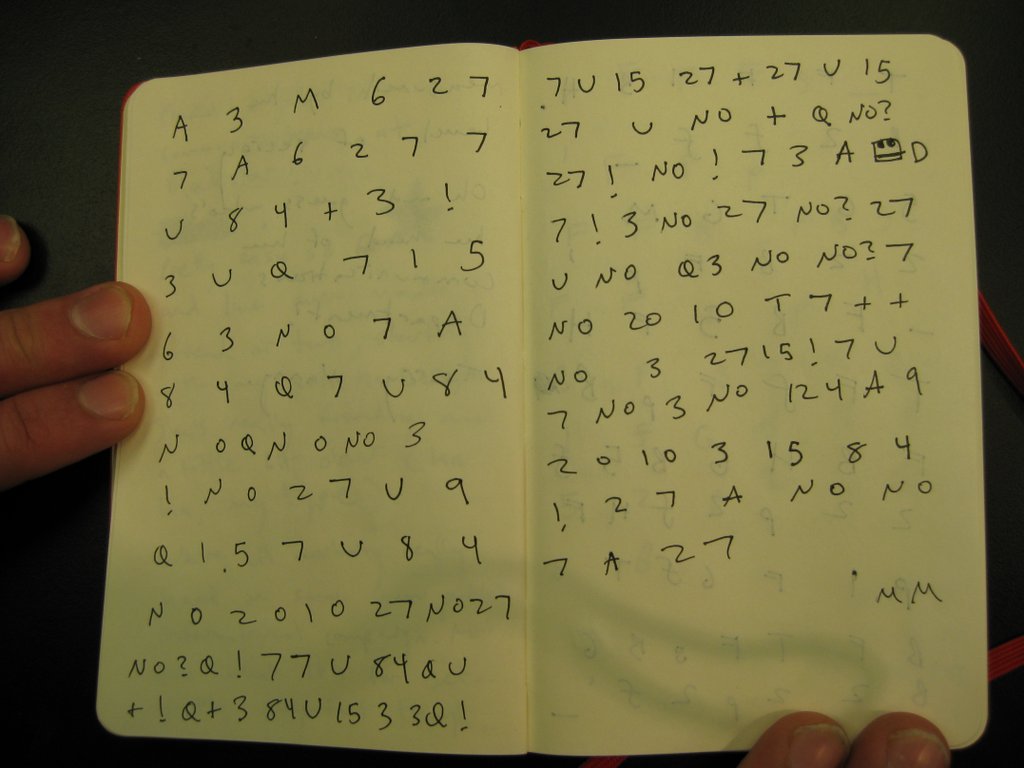 A 3 M 6 2 7
7 A 6 2 7 7
U 8 4 + 3 !
3 U Q 7 1 5
6 3 N 0 7 A
8 4 Q 7 U 8 4
N 0 Q N 0 N0 3
! N 0 2 7 U 9
Q 1.5 7 U 8 4
N 0 2 0 1 0 27 N0 27
N0? Q ! 7 7 U 84 Q U
+ ! Q + 3 84 U 15 3 3Q !
.7 U 15 27 + 27 U 15
27 U NO + Q NO?
27 ! NO ! 7 3 A D
7 ! 3 NO 27 NO? 27
U NO Q3 NO NO? 7
NO 20 10 T 7 + +
NO 3 27 15 ! 7 U
7 NO 3 NO 124 A 9
2 0 10 3 15 8 4
! 2 7 A NO NO
7 A 27
M.M